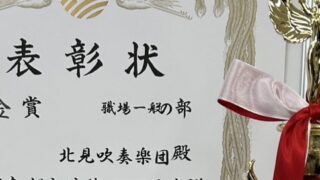 表彰状
金賞 職場一般の部
北見吹奏楽団殿